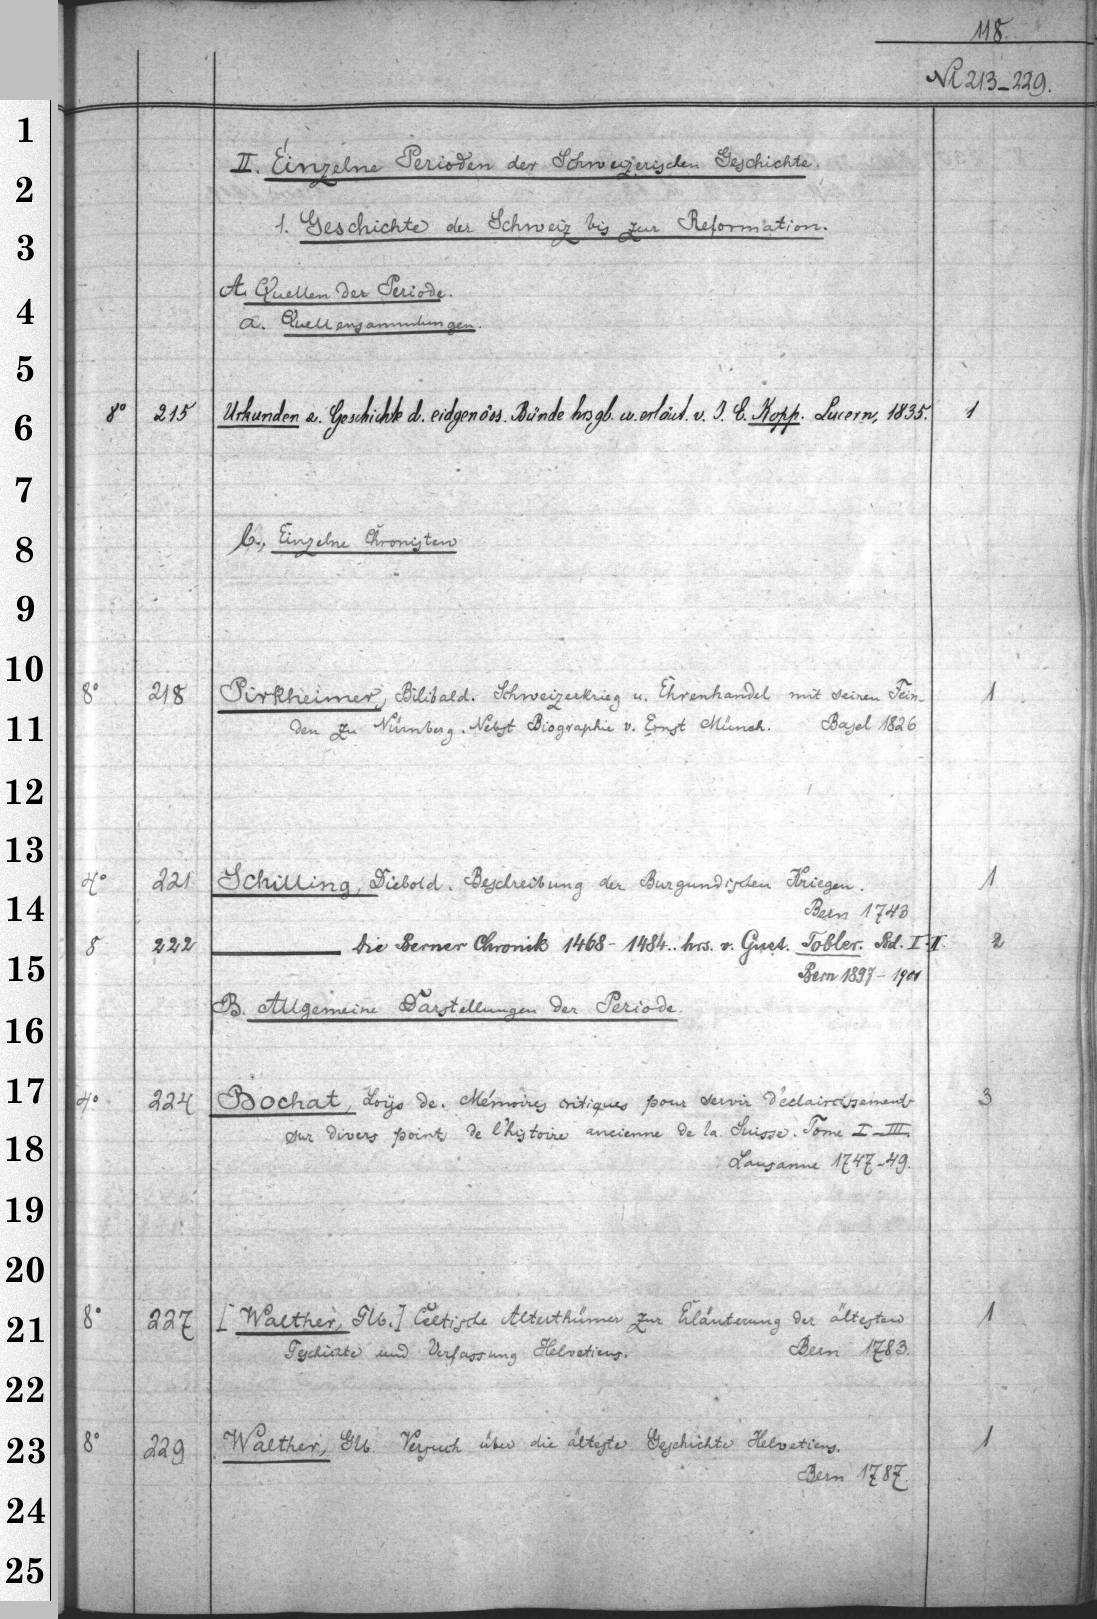 118.
№ 213-229.
II. Einzelne Perioden der Schweizerischen Geschichte.
1. Geschichte der Schweiz bis zur Reformation.
A. Quellen der Periode.
a. Quellensammlungen.
8° 215 Urkunden z. Geschichte d. eidgenöss. Bünde hrsgb. u. erläut. v. J. E. Kopp. Lucern, 1835. 1
b., Einzelne Chronisten
8° 218 Pirkheimer, Bilibald. Schweizerkrieg u. Ehrenhandel mit seinen Fein- 1
den zu Nürnberg. Nebst Biographie v. Ernst Münch. Basel 1826
4° 221 Schilling, Diebold. Beschreibung der Burgundischen Kriegen. 1
Bern 1743
8 222 Die Berner Chronik 1468-1484.. hrs. v. Gust. Tobler. Bd. I-II. 2
Bern 1897-1901
B. Allgemeine Darstellungen der Periode.
4° 224 Bochat, Loÿs de. Mémoires critiques pour servir d'éclaircissements 3
sur divers points de l'histoire ancienne de la Suisse. Tome I-III
Lausanne 1747-49.
8° 227 [Walther, Glb.] Celtische Alterthümer zur Erläuterung der ältesten 1
Geschichte und Verfassung Helvetiens. Bern 1783.
8° 229 Walther, Glb. Versuch über die älteste Geschichte Helvetiens. 1
Bern 1787.
1
2
3
4
5
6
7
8
9
10
11
12
13
14
15
16
17
18
19
20
21
22
23
24
25